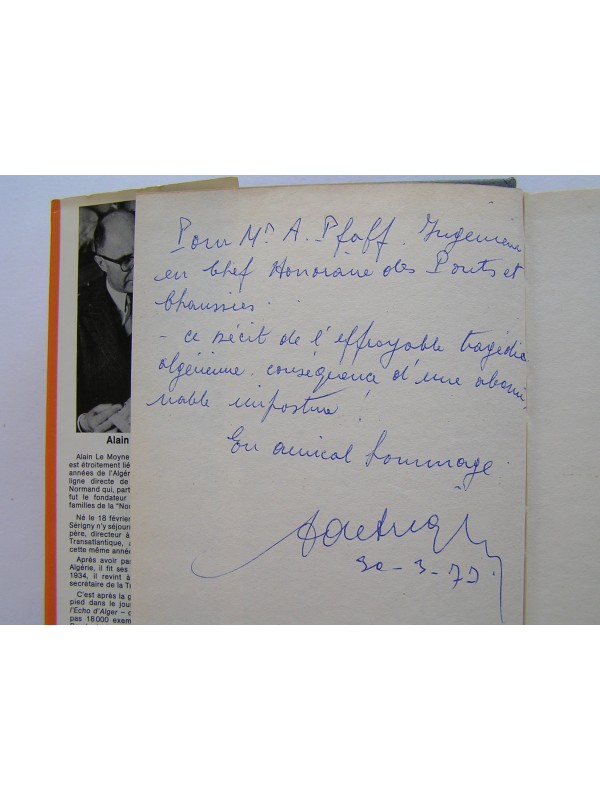 Pour Mr A. Pfaff. Ingénieur
en Chef Honoraire des Ponts et
Chaussées.
- ce récit de l'effroyable tragédie
algérienne. conséquence d'une abomi-
nable imposture !
En amical hommage
30-3-77
Alain
Alain Le Moyne
est étroitement lié
années de l'Algér
ligne directe de
Normand qui, part
fut le fondateur
familles de la "No
Né le 18 févrie
Sérigny n'y séjour
père, directeur à
Transatlantique, a
cette même année
Après avoir pas
Algérie, il fit ses
1934, il revint à
secrétaire de la Tr
C'est après la p
pied dans le jou
l'Echo d'Alger – c
pas 18 000 exem